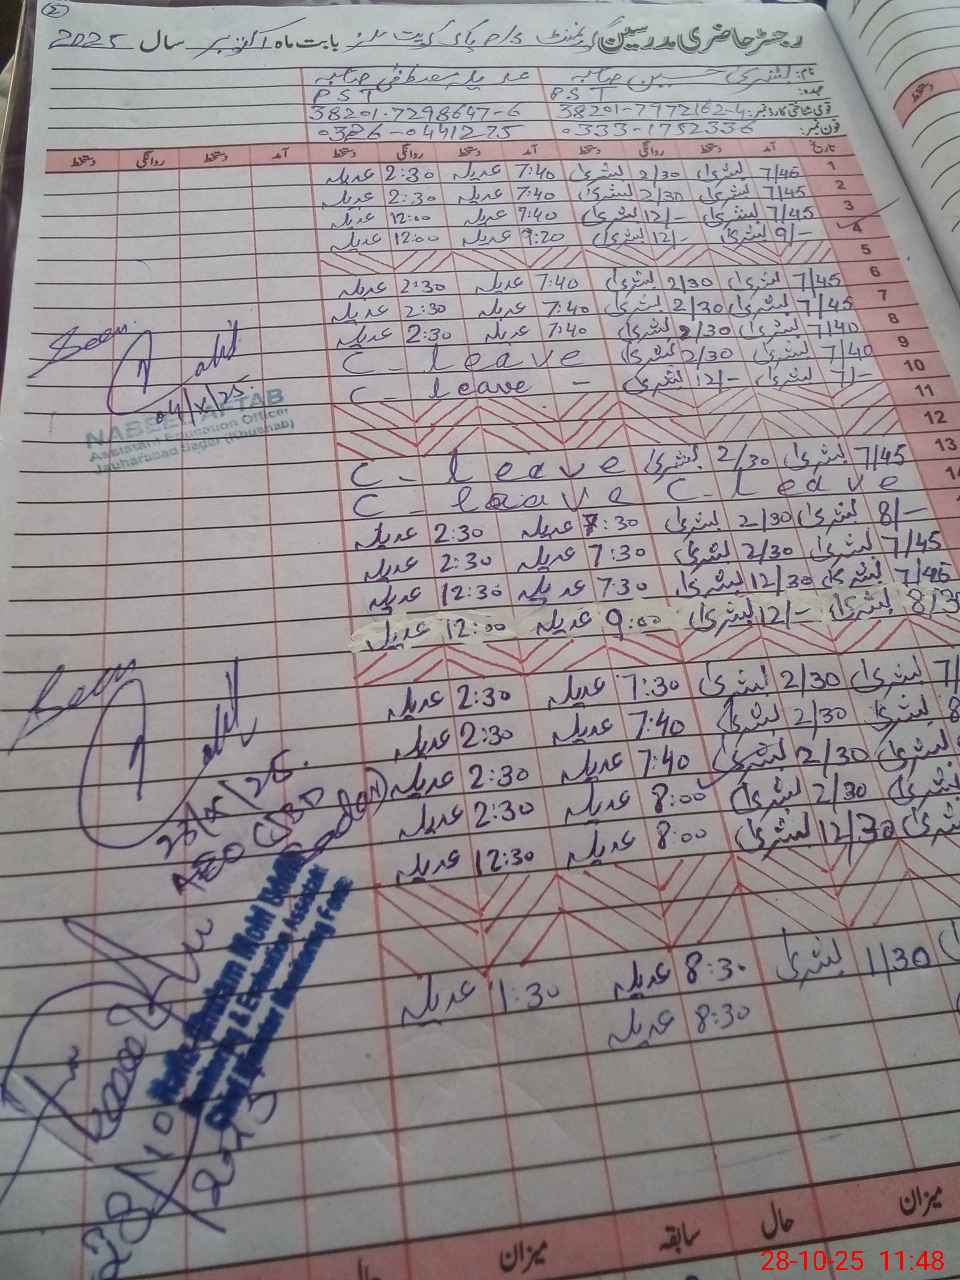 رجسٹر حاضری مدرسین گورنمنٹ بابت ماہ اکتوبر سال 2025
نام: بشریٰ حسین صاحبہ عدیلہ مصطفیٰ صاحبہ
عہدہ: PST PST
قومی شناختی کارڈ نمبر: 38201-7972162-4 38201-7298647-6
فون نمبر: 0333-1752336 0326-0441275
تاریخ آمد دستخط روانگی دستخط آمد دستخط روانگی دستخط آمد دستخط روانگی دستخط
1 7/45 بشریٰ 2/30 بشریٰ 7:40 عدیلہ 2:30 عدیلہ
2 7/45 بشریٰ 2/30 بشریٰ 7:40 عدیلہ 2:30 عدیلہ
3 7/45 بشریٰ 12/- بشریٰ 7:40 عدیلہ 12:00 عدیلہ
4 9/- بشریٰ 12/- بشریٰ 9:20 عدیلہ 12:00 عدیلہ
5
6 7/45 بشریٰ 2/30 بشریٰ 7:40 عدیلہ 2:30 عدیلہ
7 7/45 بشریٰ 2/30 بشریٰ 7:40 عدیلہ 2:30 عدیلہ
8 7/40 بشریٰ 2/30 بشریٰ 7:40 عدیلہ 2:30 عدیلہ
9 7/40 بشریٰ 2/30 بشریٰ C - leave
10 7/- بشریٰ 12/- بشریٰ C - leave -
11
12
13 7/45 بشریٰ 2/30 بشریٰ C - leave
C - leave C - leave
8/- بشریٰ 2/30 بشریٰ 7:30 عدیلہ 2:30 عدیلہ
7/45 بشریٰ 2/30 بشریٰ 7:30 عدیلہ 2:30 عدیلہ
7/45 بشریٰ 12/30 بشریٰ 7:30 عدیلہ 12:30 عدیلہ
بشریٰ 12/- بشریٰ 9:00 عدیلہ 12:00 عدیلہ
بشریٰ 2/30 بشریٰ 7:30 عدیلہ 2:30 عدیلہ
بشریٰ 2/30 بشریٰ 7:40 عدیلہ 2:30 عدیلہ
بشریٰ 2/30 بشریٰ 7:40 عدیلہ 2:30 عدیلہ
بشریٰ 2/30 بشریٰ 8:00 عدیلہ 2:30 عدیلہ
بشریٰ 12/30 بشریٰ 8:00 عدیلہ 12:30 عدیلہ
1/30 بشریٰ 8:30 عدیلہ 1:30 عدیلہ
8:30 عدیلہ
Seen
04/X/25
NABEEL AFTAB
Assistant Education Officer
Jauharabad Saddar (Khushab)
Seen
23/X/25.
Monitoring & Evaluation Assistant
Chief Minister Monitoring Force
28/10
میزان حال سابقہ میزان حال
28-10-25 11:48